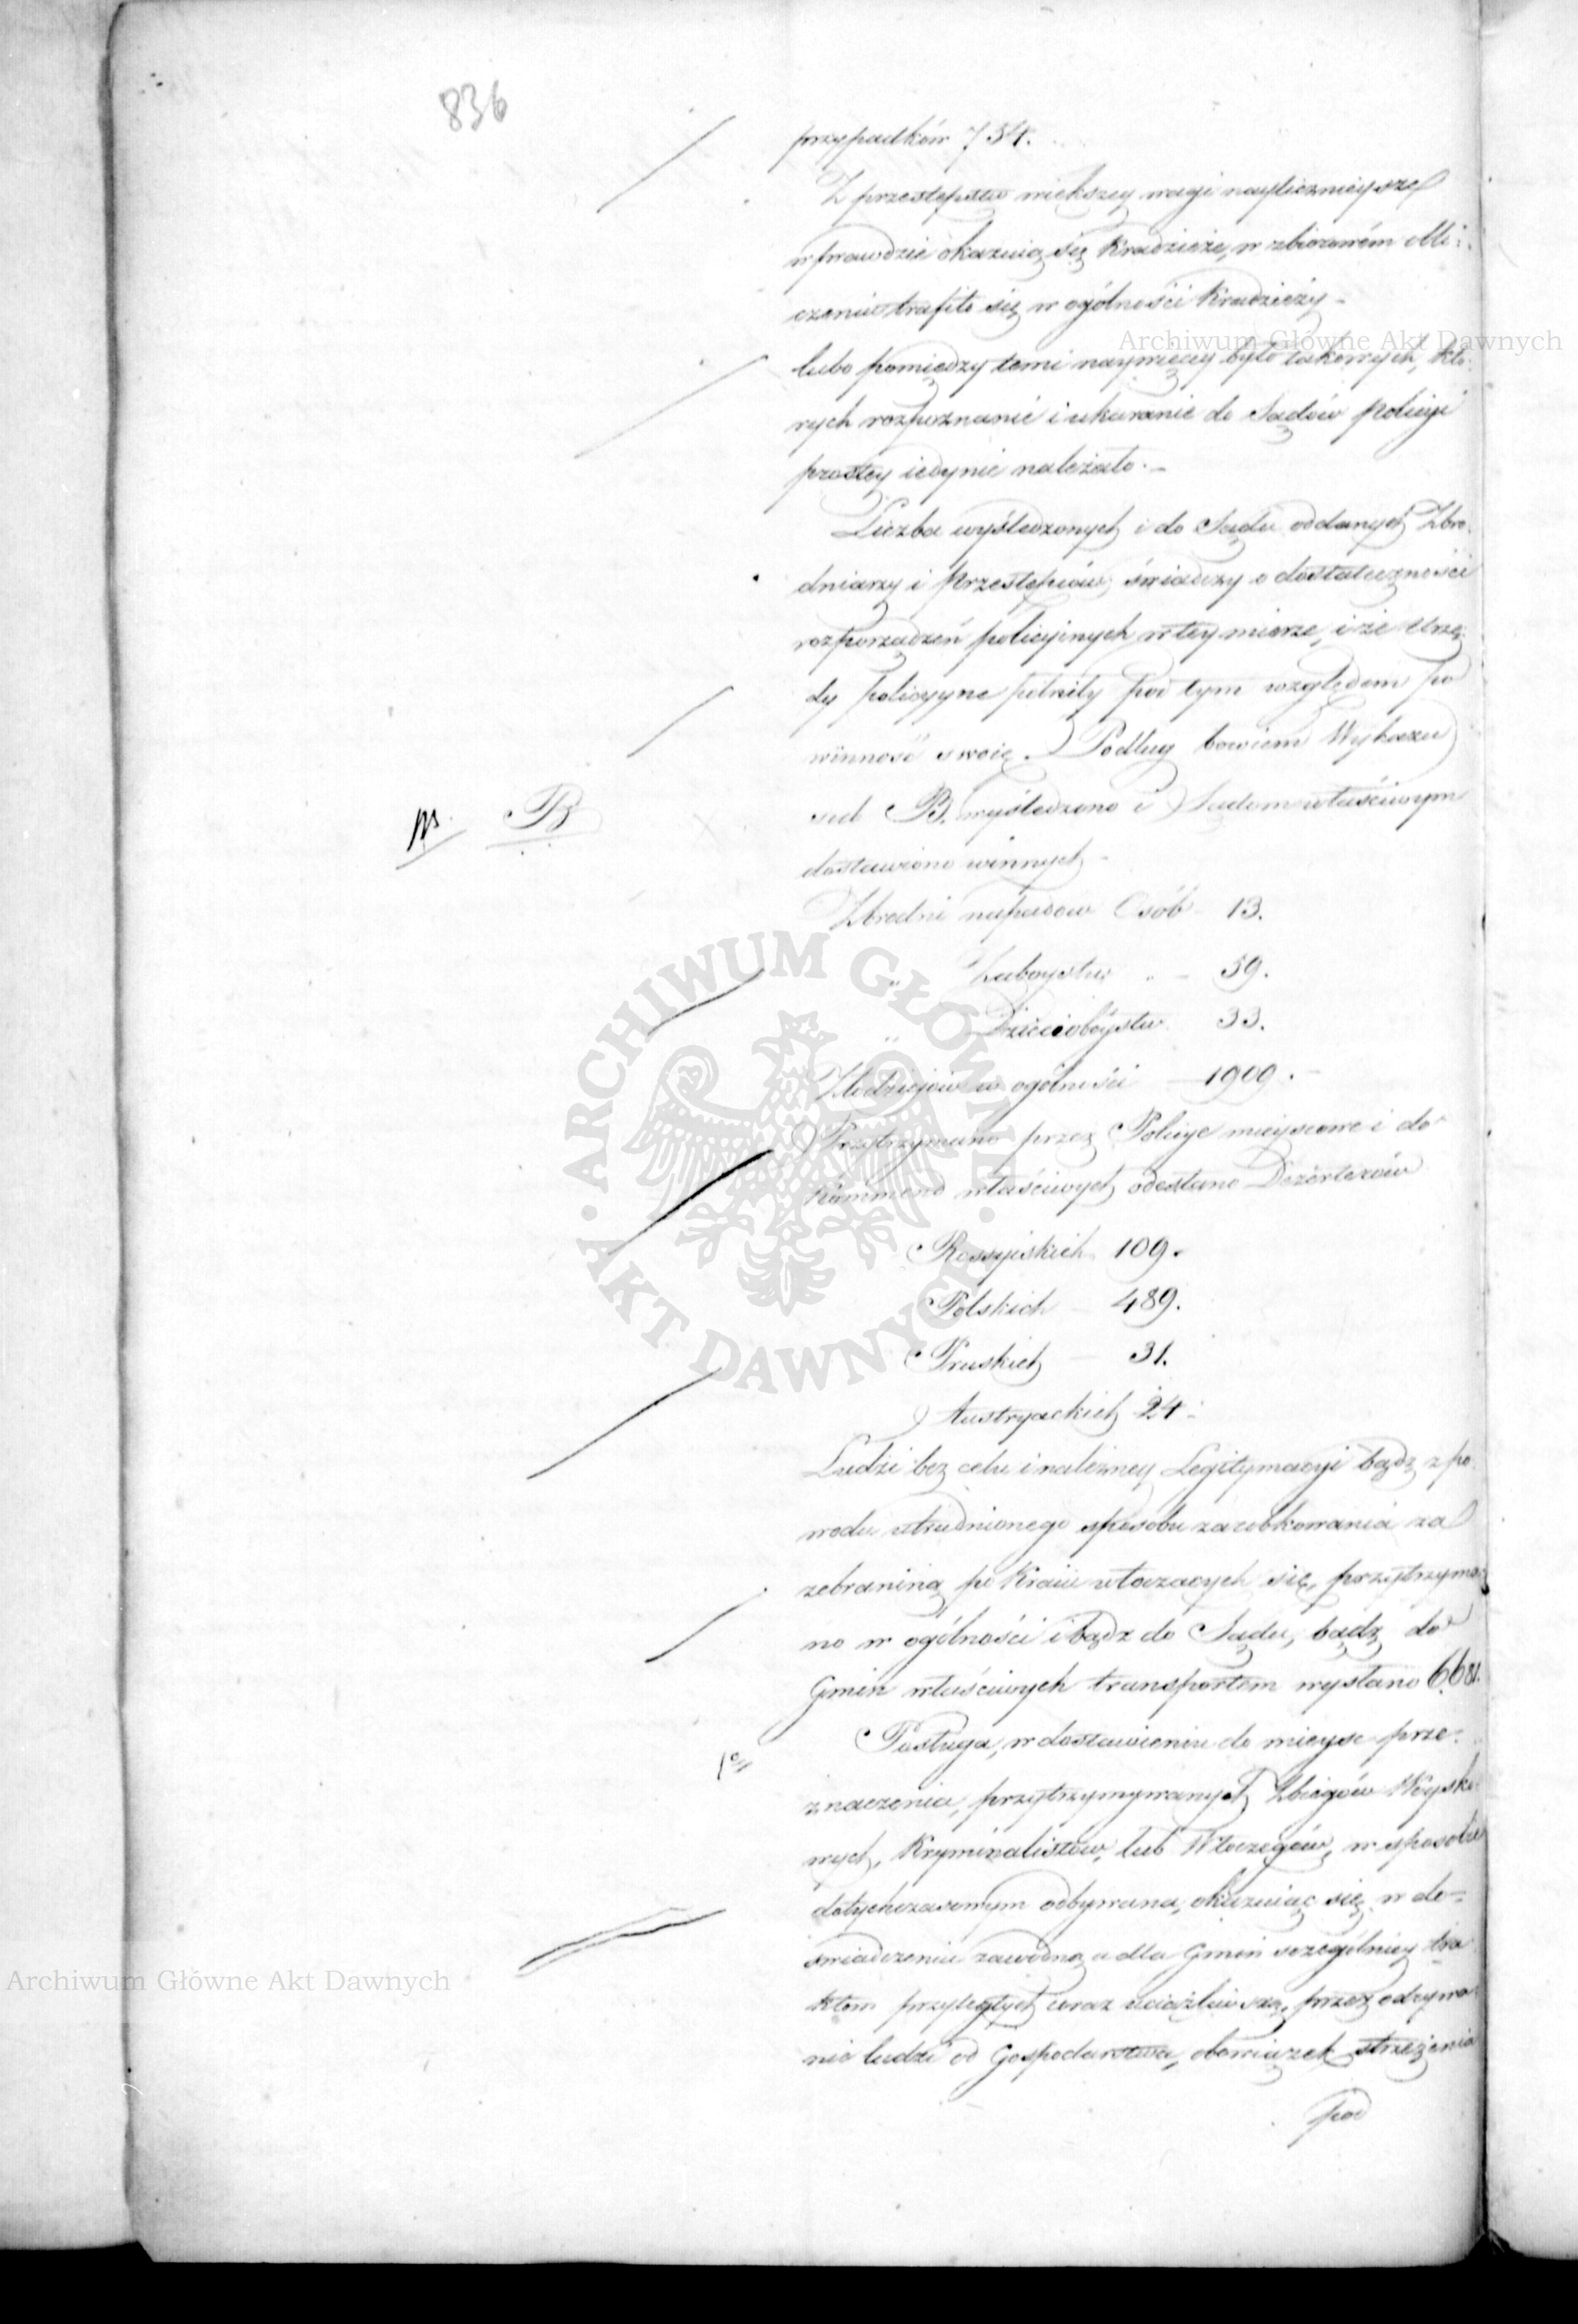 836
przypadków 734.
Z przestępstw większey wagi naylicznieysze
wprawdzie okazuią się Kradzieże, w zbiorowém obli-
czeniu trafiło się w ogólności Kradzieży –
lubo pomiędzy temi naywięcey było takowych, któ-
rych rozpoznanié i ukaranie do Sądów Policyi
prostey iedynie należało. –
Liczba wyśledzonych i do Sądu oddanych Zbro-
dniarzy i Przestępców, świadczy o dostateczności
rozporządzeń policyinych w tey mierze, i że Urzę-
dy policyyne pełniły pod tym względem po
winność swoię. Podług bowiem Wykazu
sub B. wyśledzono i Sądom właściwym
B
dostawiono winnych –
Zbrodni napadów Osób – 13.
„ Zaboystw „ – 59.
„ Dzieciobóystw 33.
Złodziejów w ogólności – 1909. –
Przytrzymano przez Policye mieyscowe i do
Kommend właściwych odesłano Dezerterów
Rossyiskich 109.
Polskich – 489.
Pruskich – 31.
Austryackich 24.
Ludzi bez celu i należney Legitymacyi bądz z po-
wodu utrudnionego sposobu zarobkowania za
żebraniną po Kraiu włoczacych się, przytrzyma-
no w ogólności i bądz do Sądu, bądz do
Gmin właściwych transportem wysłano 6681.
Posługa, w dostawieniu do mieysc prze-
znaczenia, przytrzymywanych Zbiegów Woysko-
wych, Kryminalistów, lub Włoczęgów, w sposobie
dotychczasowym odbywana, okazuiąc się w do-
świadczeniu zawodną a dla Gmin szczególniey tra-
ktom przyległych coraz uciążliwszą, przez odrywa-
nie ludzi od Gospodarstwa, obowiązek strzeżenia
pod
Archiwum Główne Akt Dawnych
ARCHIWUM GŁÓWNE AKT DAWNYCH
Archiwum Główne Akt Dawnych